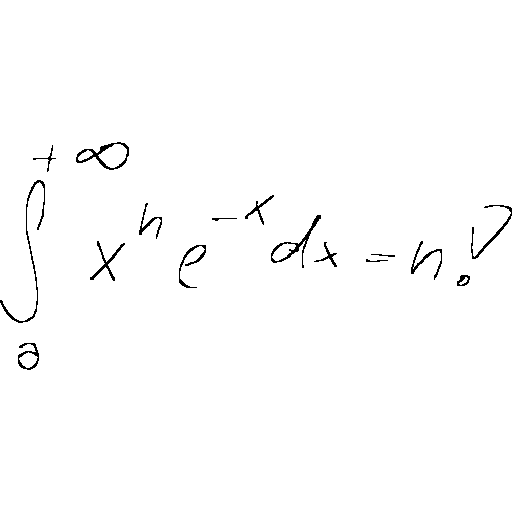 \int_{a}^{+\infty} x^n e^{-x} dx = n!